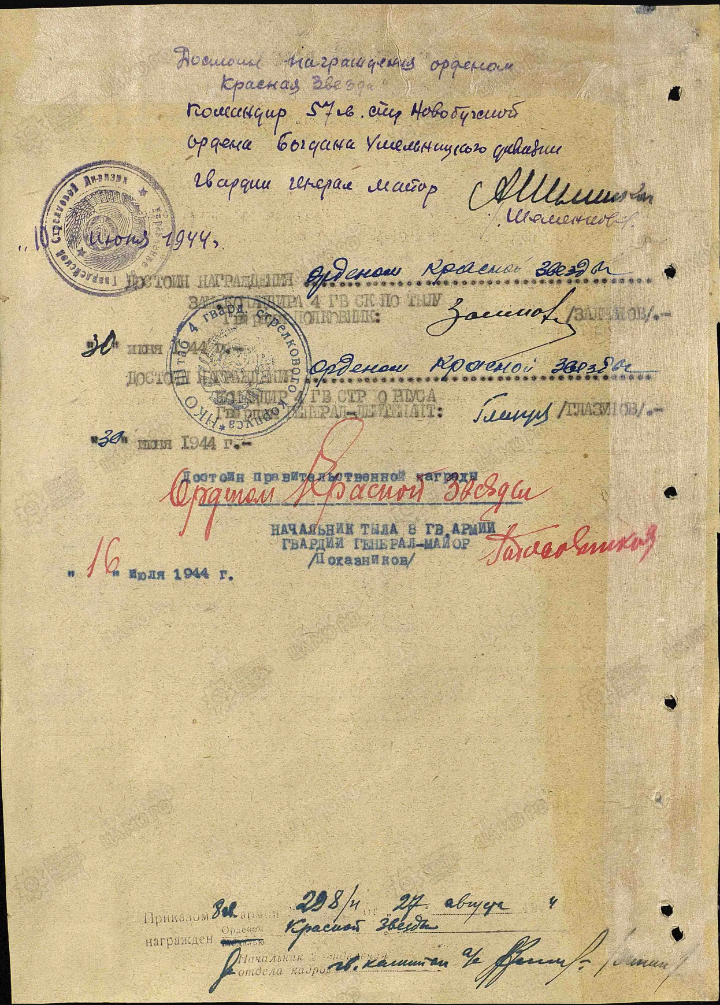 Достоин награждения орденом
Красная Звезда
Командир 57 гв. стр Новобугской
ордена Богдана Хмельницкого дивизии
гвардии генерал майор
Шеменков
"10" июня 1944 г.
Гвардейской Стрелковой Дивизии
ДОСТОИН НАГРАЖДЕНИЯ орденом Красной Звезды
ЗАМ.КОМАНДИРА 4 ГВ СК ПО ТЫЛУ
ГВАРДИИ ПОЛКОВНИК: /ЗАЛИЗОВ/.-
"30" июня 1944 г.-
НКО Штаб 4 гвард. стрелкового корпуса
ДОСТОИН НАГРАЖДЕНИЯ орденом Красной Звезды
КОМАНДИР 4 ГВ СТР КОРПУСА
ГВАРДИИ ГЕНЕРАЛ-ЛЕЙТЕНАНТ: /ГЛАЗУНОВ/.-
"30" июня 1944 г.-
Достоин правительственной награды
Орденом Красной Звезды
НАЧАЛЬНИК ТЫЛА 8 ГВ.АРМИИ
ГВАРДИИ ГЕНЕРАЛ-МАЙОР
/Показников/
"16" Июля 1944 г.
Приказом 8 гв. армии 298/н от 27 августа 4
награжден Орденом Красной Звезды
Начальник отделения
отдела кадров гв. капитан а/с